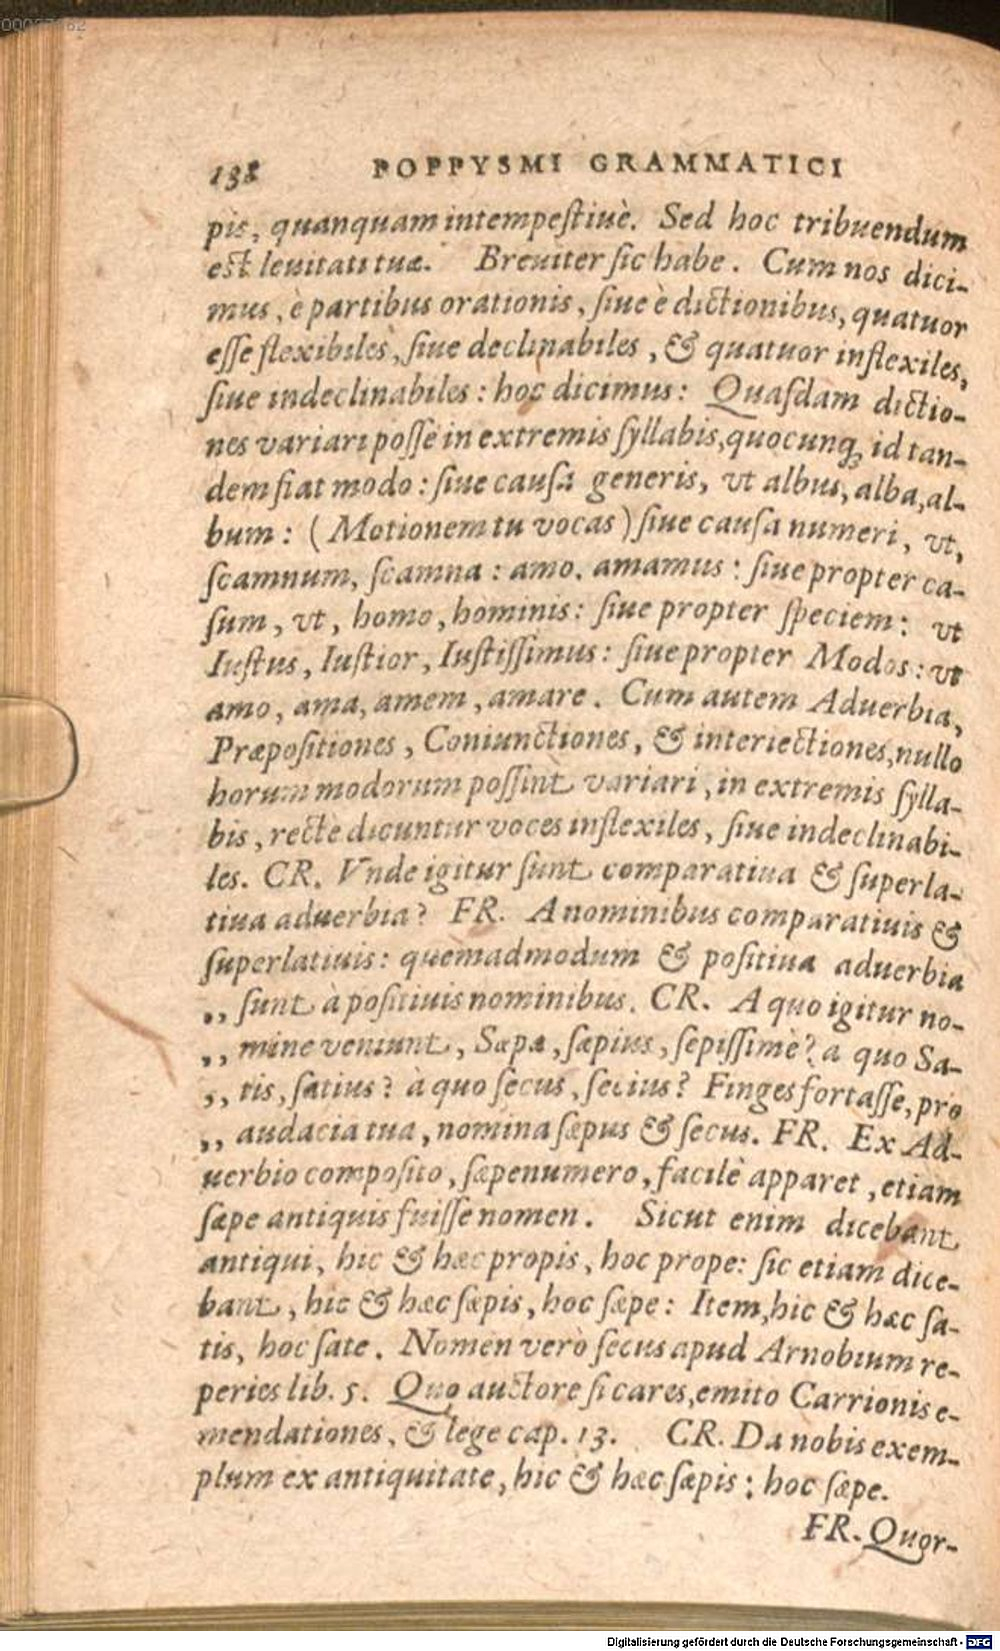 00027362
138 POPPYSMI GRAMMATICI
pis, quanquam intempeſtiuè. Sed hoc tribuendum
est leuitati tuæ. Breuiter ſic habe. Cum nos dici-
mus, è partibus orationis, ſiue è dictionibus, quatuor
eſſe flexibiles, ſiue declinabiles, & quatuor inflexiles,
ſiue indeclinabiles: hoc dicimus: Quaſdam dictio-
nes variari poſſe in extremis ſyllabis, quocunq; id tan-
dem fiat modo: ſiue cauſa generis, vt albus, alba, al-
bum: (Motionem tu vocas) ſiue cauſa numeri, vt,
ſcamnum, ſcamna: amo. amamus: ſiue propter ca-
ſum, vt, homo, hominis: ſiue propter ſpeciem: vt
Iuſtus, Iuſtior, Iuſtiſſimus: ſiue propter Modos: vt
amo, ama, amem, amare. Cum autem Aduerbia,
Præpoſitiones, Coniunctiones, & interiectiones, nullo
horum modorum poſſint variari, in extremis ſylla-
bis, recte dicuntur voces inflexiles, ſiue indeclinabi-
les. CR. Vnde igitur ſunt comparatiua & ſuperla-
tiua aduerbia? FR. A nominibus comparatiuis &
ſuperlatiuis: quemadmodum & poſitiua aduerbia
,, ſunt à poſitiuis nominibus. CR. A quo igitur no-
,, mine veniunt, Sæpe, ſæpius, ſepiſſimè? a quo Sa-
,, tis, ſatius? à quo ſecus, ſecius? Finges fortaſſe, pro
,, audacia tua, nomina ſæpus & ſecus. FR. Ex Ad-
uerbio compoſito, ſæpenumero, facilè apparet, etiam
ſæpe antiquis fuiſſe nomen. Sicut enim dicebant
antiqui, hic & hæc propis, hoc prope: ſic etiam dice-
bant, hic & hæc ſæpis, hoc ſæpe: Item, hic & hæc ſa-
tis, hoc ſate. Nomen verò ſecus apud Arnobium re-
peries lib. 5. Quo auctore ſi cares, emito Carrionis e-
mendationes, & lege cap. 13. CR. Da nobis exem-
plum ex antiquitate, hic & hæc ſæpis: hoc ſæpe.
FR. Quor-
Digitalisierung gefördert durch die Deutsche Forschungsgemeinschaft - DFG